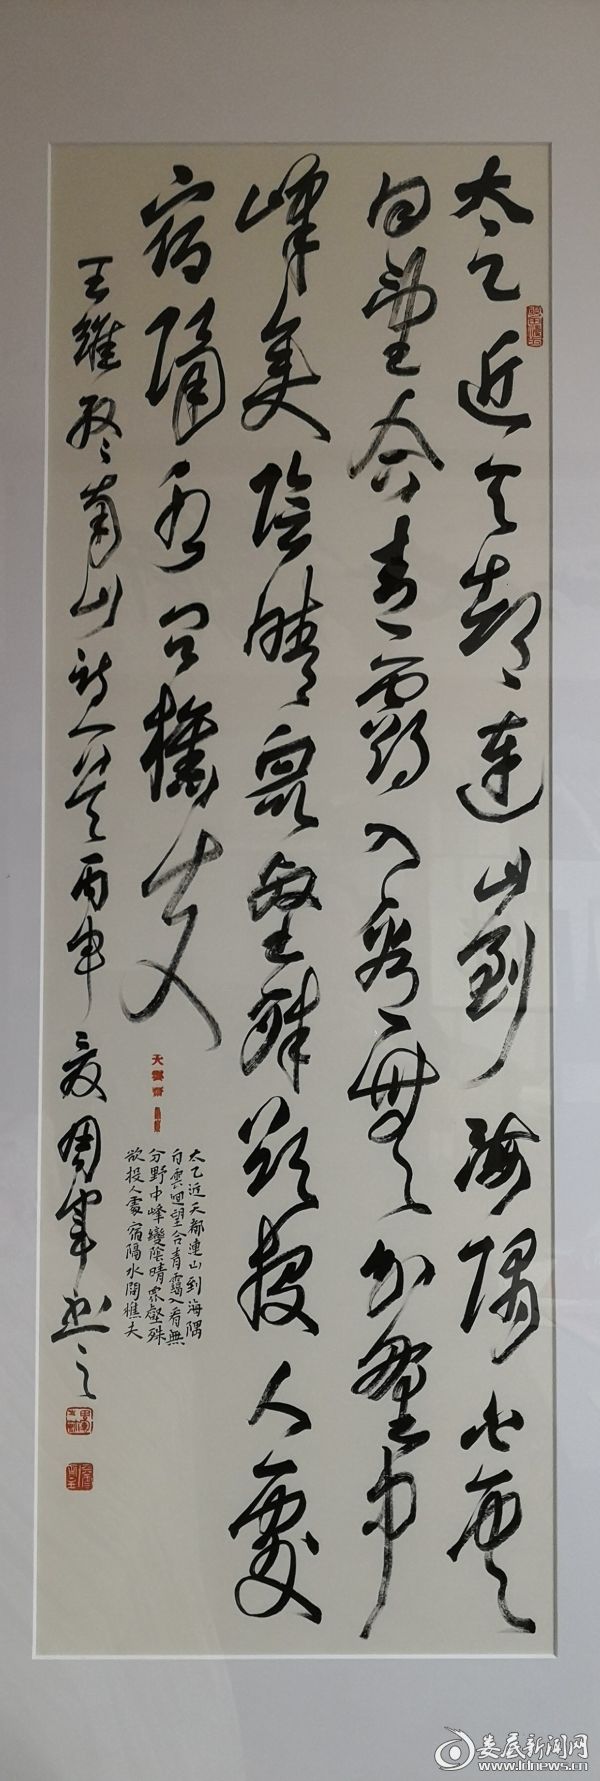 太乙近天都連山到海隅白雲
回望合青靄入看無分野中
峰變陰晴眾壑殊欲投人處
宿隔水問樵夫
太乙近天都連山到海隅
白雲迴望合青靄入看無
分野中峰變陰晴眾壑殊
欲投人處宿隔水問樵夫
王維終南山詩一首丙申夏周軍书之
娄底新闻网
www.ldnews.cn